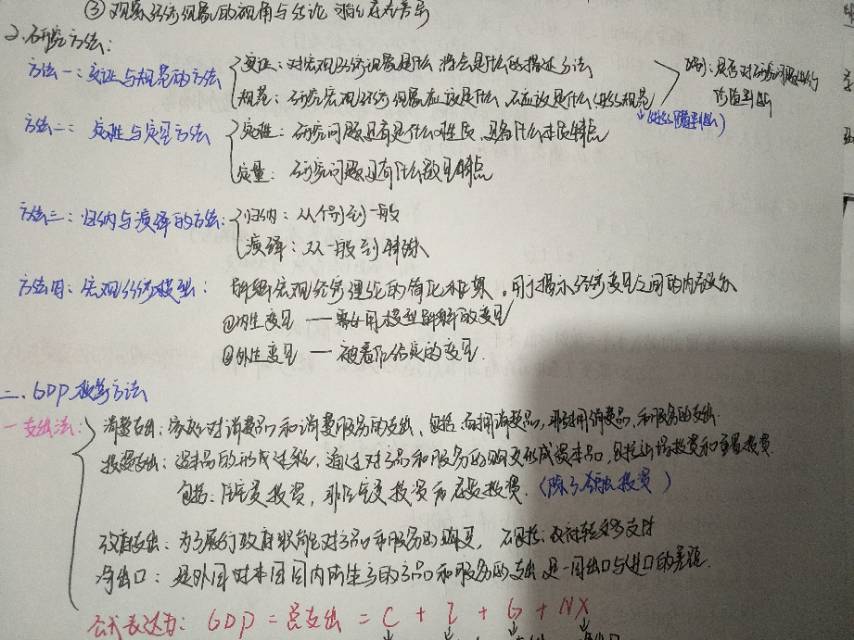 ③ 观察经济现象的视角与结论
2. 研究方法:
方法一: 实证与规范的方法 实证: 对宏观经济现象是什么 将会是什么的描述方法
规范: 研究宏观经济现象应该是什么, 不应该是什么 区别: 是否对研究问题进行
价值判断
方法二: 定性与定量方法 定性: 研究问题具有是什么性质, 具有什么本质特点
定量: 研究问题具有什么数量特点
方法三: 归纳与演绎的方法: 归纳: 从个别到一般
演绎: 从一般到特殊
方法四: 宏观经济模型: 解释宏观经济理论的简化框架, 用于揭示经济变量之间的内在
①内生变量 — 需要用模型解释的变量
②外生变量 — 被看作给定的变量.
二. GDP核算方法
一 支出法: 消费支出: 家庭对消费品和消费服务的支出, 包括 耐用消费品, 非耐用消费品, 和服务的支出
投资支出: 资本品的形成过程, 通过对产品和服务的购买形成资本品, 包括 投资和重置投资.
包括: 住宅投资, 非住宅投资和存货投资. (除了金融投资)
政府支出: 为了履行政府职能对产品和服务的购买, 不包括: 政府转移支付
净出口: 是外国对本国国内所生产的产品和服务的支出 是一国出口与进口的差额.
公式表达为: GDP = 总支出 = C + I + G + NX